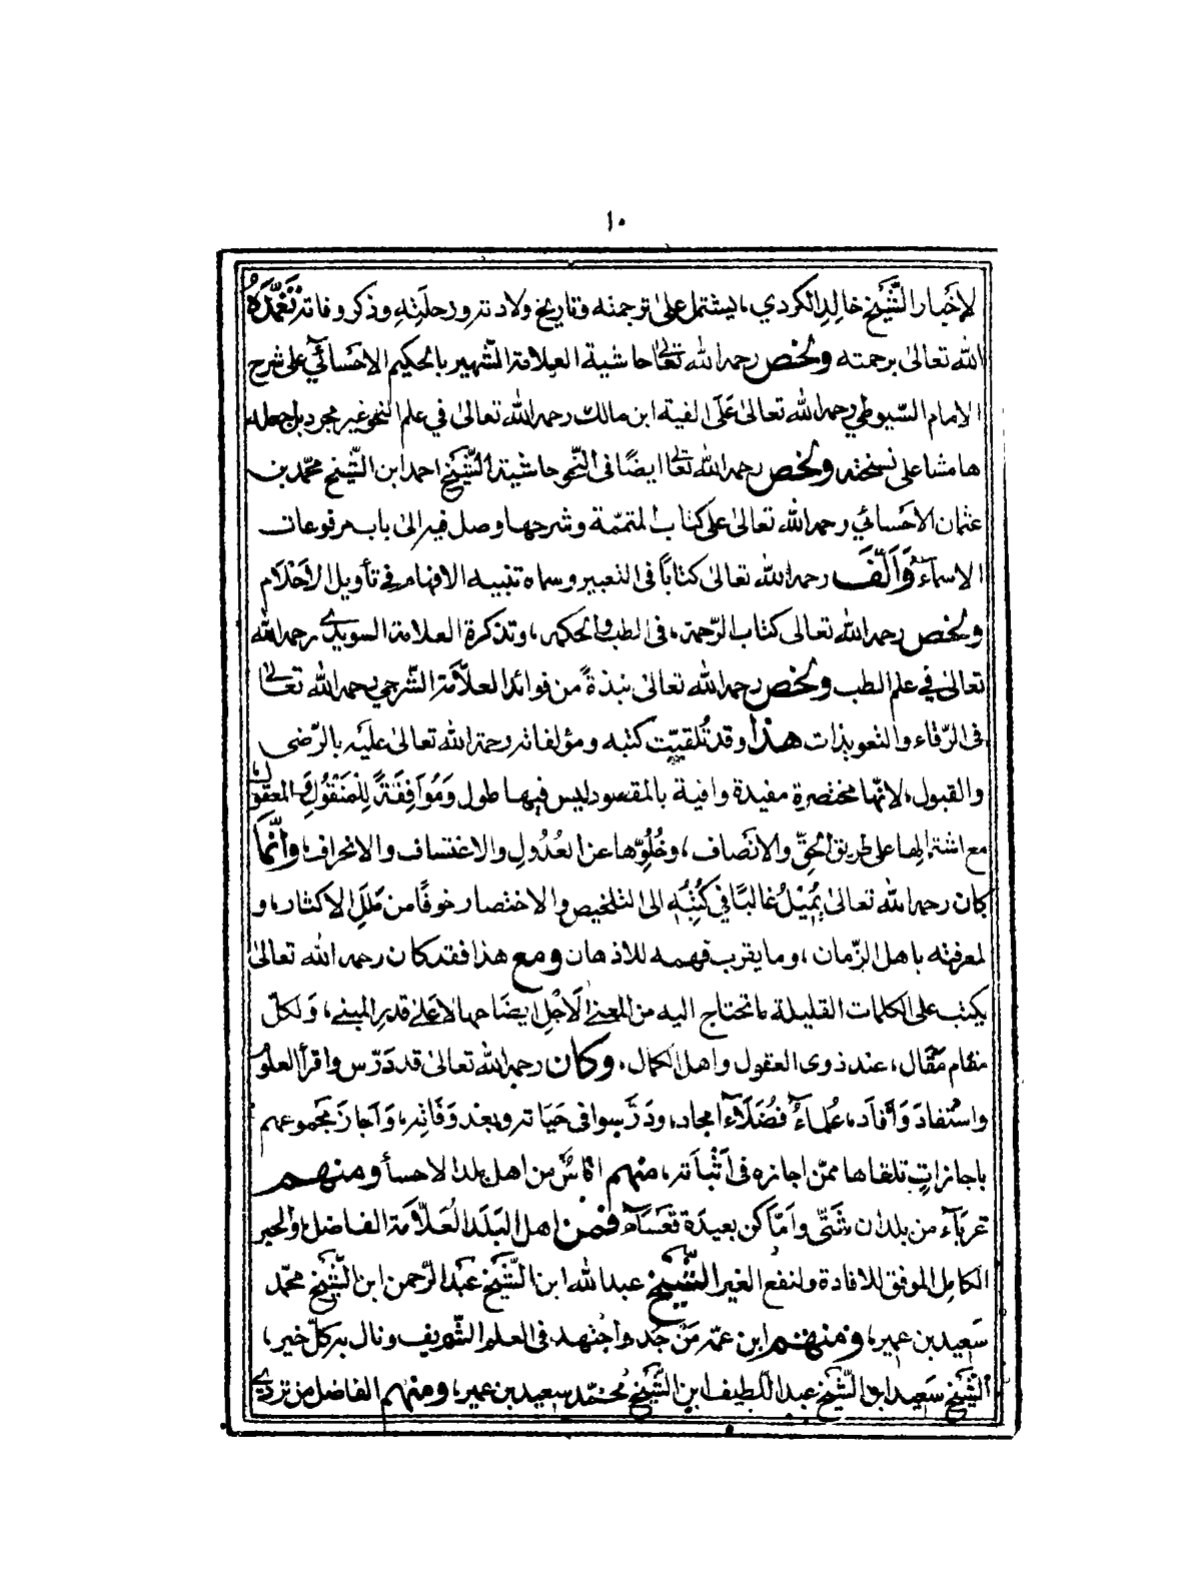 ١٠
لاخبار الشَّيخ خالد الكردي، يشتمل على ترجمته وتاريخ ولادته ورحلَتِهِ وذكر وفاته تَغَمَّدَهُ
الله تعالىٰ برحمته ولخص رحمه الله تعالىٰ حاشية العلامة الشهير بالحكيم الاحسائي على شرح
الامام السّيوطي رحمه الله تعالىٰ عَلَى الفية ابن مالك رحمه الله تعالىٰ في علم النحو غير مجرد بل جعله
هامشا على نسخته ولخص رحمه الله تعالىٰ ايضًا فى النّحو حاشية الشَّيخ احمد ابن الشّيخ محمّد بن
عثمان الاحسائي رحمه الله تعالىٰ على كتاب المتممّة وشرحها وصل فيه الىٰ باب مرفوعات
الاسمآء وَاَلَّفَ رحمه الله تعالىٰ كتابًا فى التعبير وسماه تنبيه الافهام في تأويل الاَحْلَام
ولخص رحمه الله تعالى كتاب الرّحمة، فى الطب والحكمه، وتذكرة العلامة السويدي رحمه الله
تعالىٰ في علم الطب ولخص رحمه الله تعالىٰ نبذةً من فوائد العلّامة الشّرجي رحمه الله تعالىٰ
فى الرّقاء والتعويذات هذا وقد تُلقيّت كتبه ومؤلفاته رحمة الله تعالىٰ عليه بالرّضى
والقبول، لانّها مختصرة مفيدة وافية بالمقصود ليس فيها طول وَمُوَافِقَةً لِلْمَنْقُولِ وَالمعقول
مع اشتمالها على طريق الحقّ والانصاف، وخُلُوِّها عن العُدُولِ والاعتساف والانحراف، وانَّمَا
كان رحمه الله تعالىٰ يَمِيْلُ غالبًا في كُتُبِه الى التلخيص والاختصار خوفًا من مَلَلِ الاكثار، و
لمعرفته باهل الزّمان، وما يقرب فهمه للاذهان ومع هذا فقد كان رحمه الله تعالىٰ
يكتب على الكلمات القليلة ما تحتاج اليه من المعنى لاَجْلِ ايضَاحها لا على قدر المبنى، وَلكلّ
مقام مَقَال، عند ذوى العقول واهل الكمال، وكان رحمه الله تعالىٰ قد دَرّس واقرأ العلوُ
واسْتفادَ وَاَفاَد، عُلماءٌ فُضَلَاءٌ امجاد، ودَرَّسوا فى حَيَاته وبعْد وَفَاتِه، وَاَجازَ مَجموعهم
باجازاتٍ تلقاها ممّن اجازه فى اَثْبَاته، منهم اناسٌ من اهل بلد الاحسأ ومنهم
غربَآء من بلدان شَتّىٰ واَمَاكن بعيدَة تعسآء فمن اهل البَلَد العَلّامَة الفاضل والحبر
الكامِل الموفق للافادة ولنفع الغير الشَّيخ عبد الله ابن الشّيخ عَبْد الرّحمن ابن الشّيخ محمّد
سَعِيد بن عمير، ومنهم ابن عمّه مَنْ جَد واجْتهد فى العلم الشّريف ونال به كلّ خير،
الشّيخ سَعِيد ابن الشّيخ عبد اللّطيف ابن الشَّيخ مُحمّد سعيد بن عمير، ومنهم الفاضل من تردي